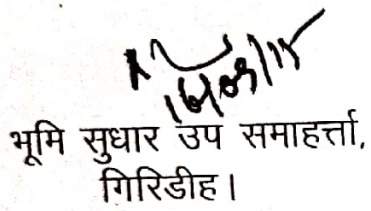 भूमि सुधार उप समाहर्त्ता,
गिरिडीह।